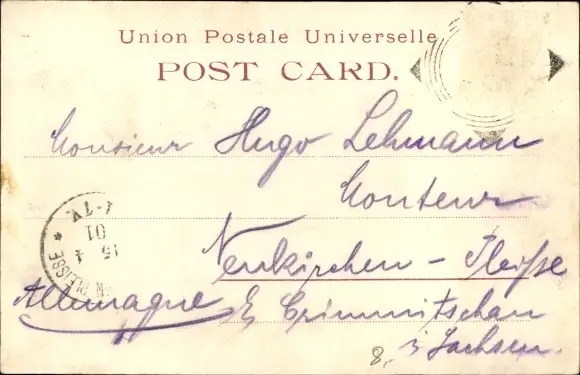 Union Postale Universelle
POST CARD.
Monsieur Hugo Lehmann
Monteur
Neukirchen - Pleiße
Allemagne b/ Crimmitschau
i/ Sachsen.
8,